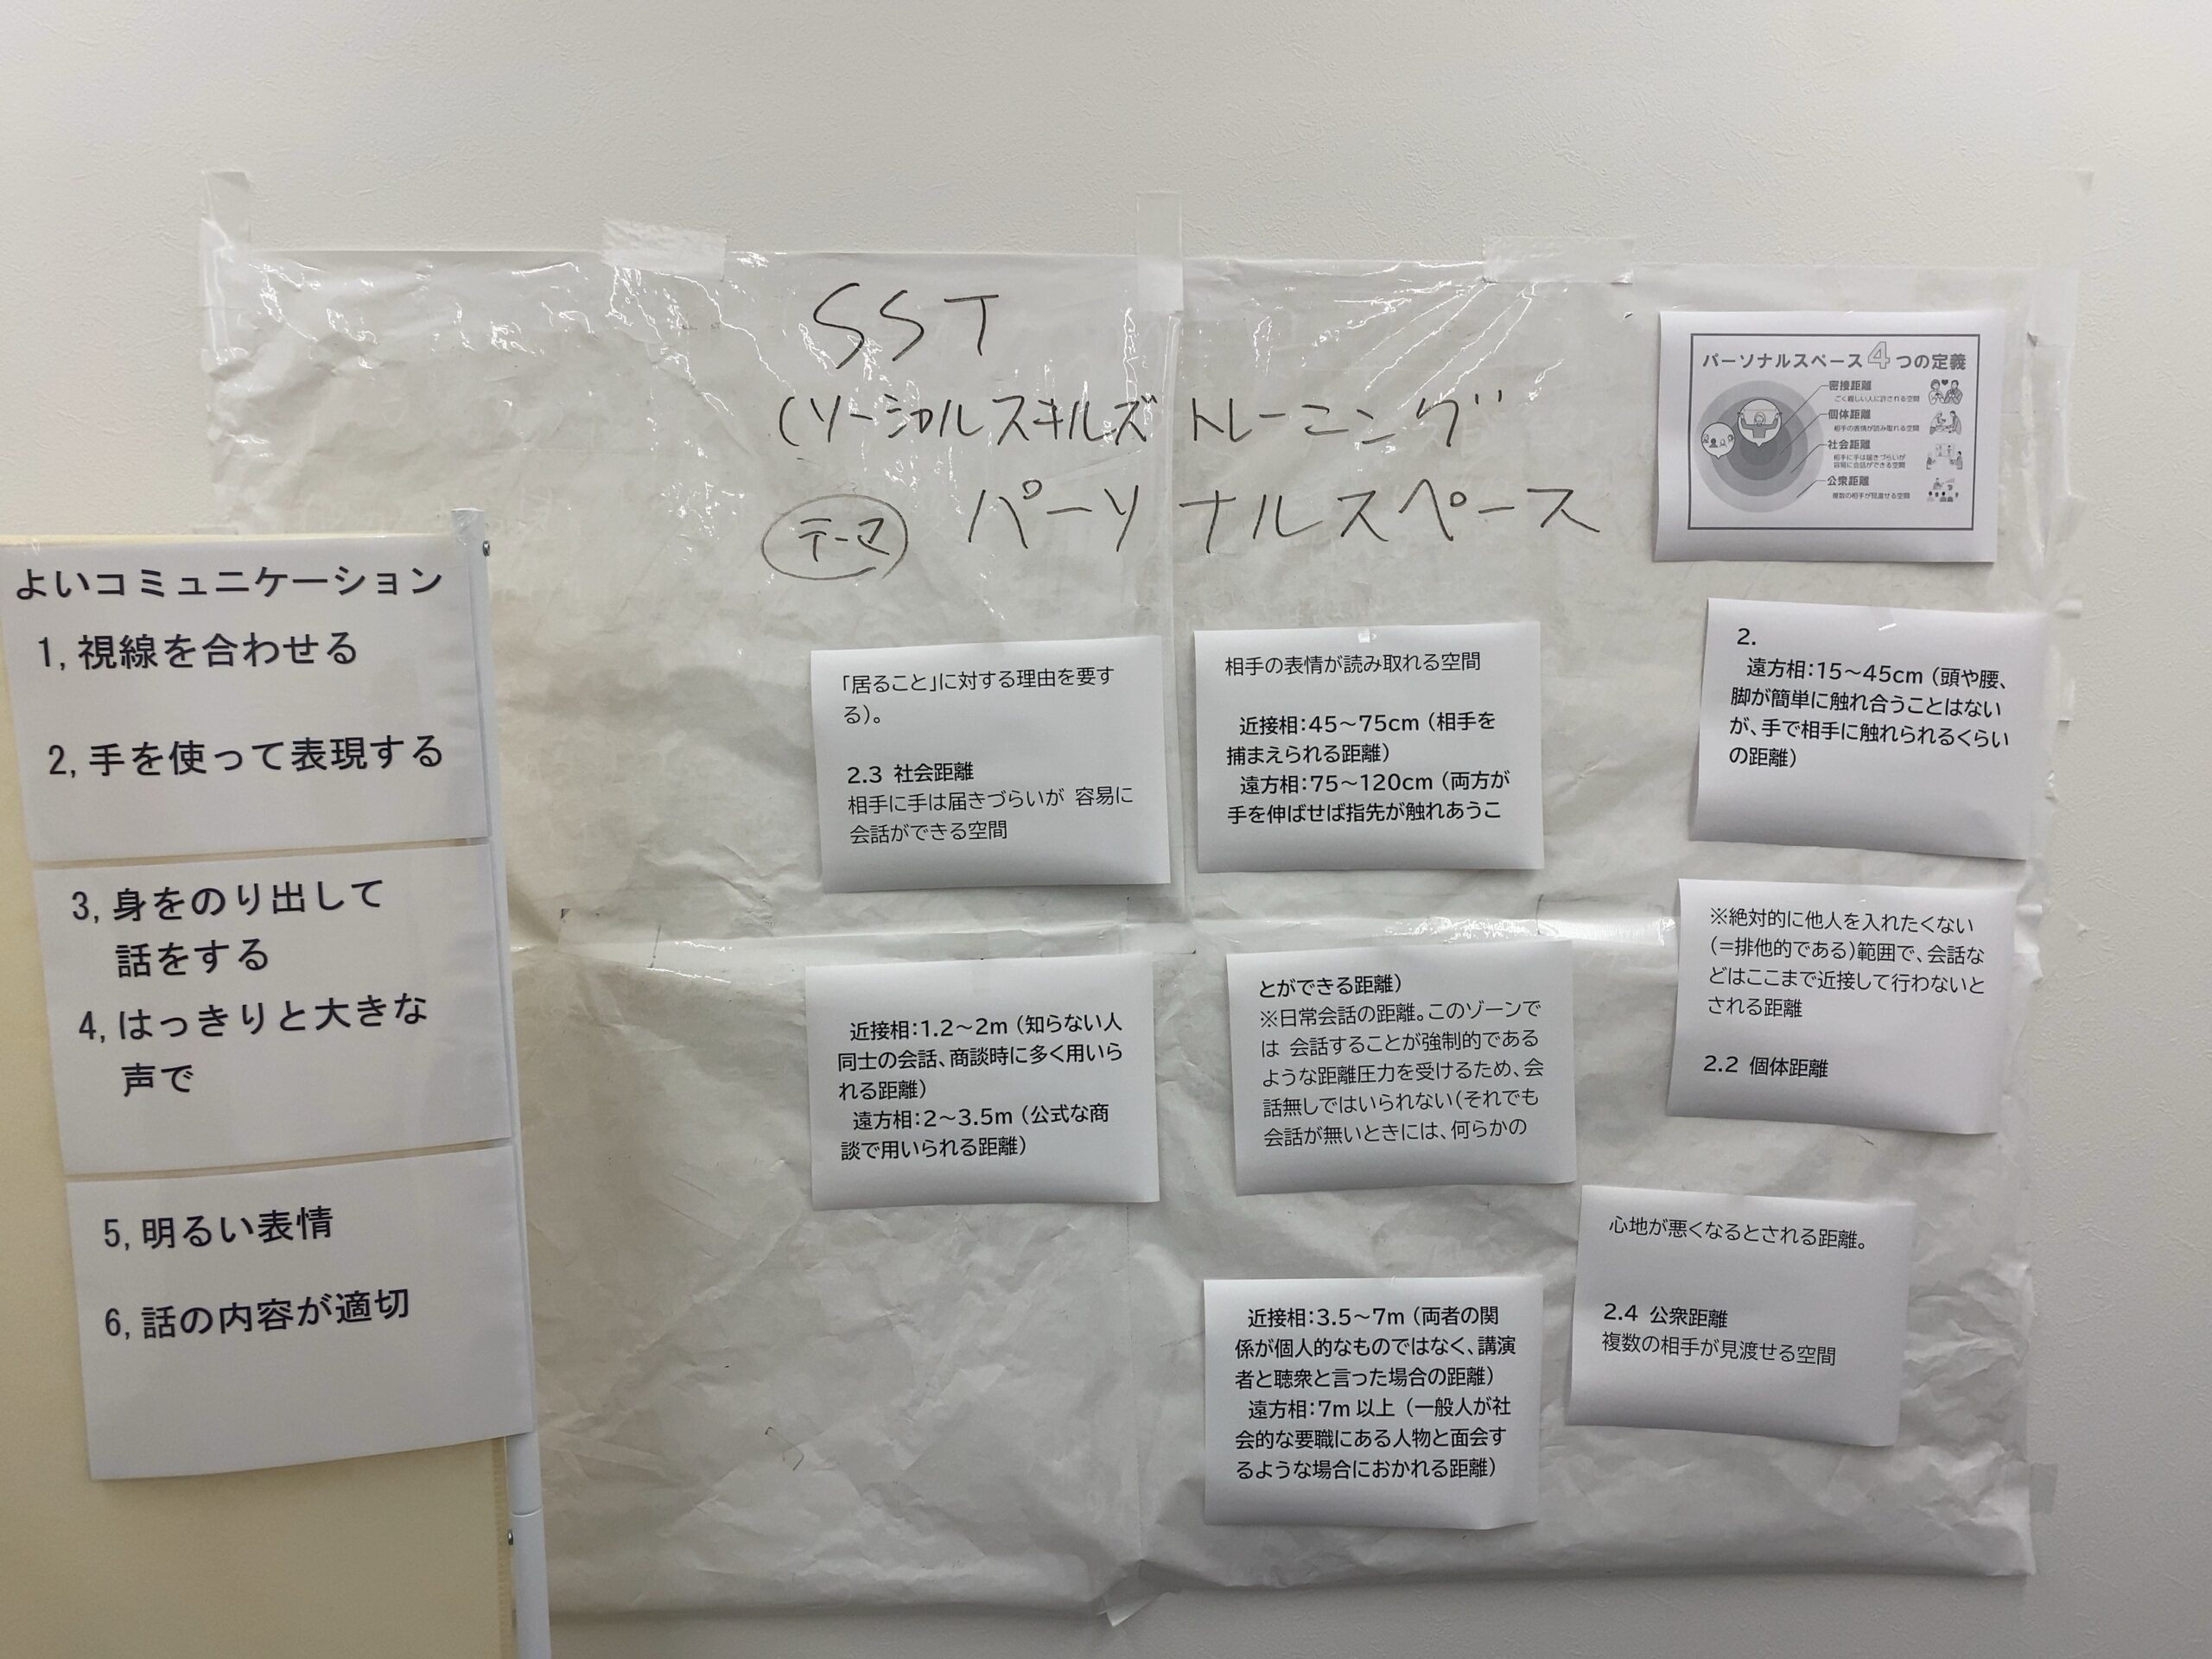 SST
(ソーシャルスキルズトレーニング
テーマ パーソナルスペース
パーソナルスペース4つの定義
密接距離
ごく親しい人に許される空間
個体距離
相手の表情が読み取れる空間
社会距離
相手に手は届きづらいが
容易に会話ができる空間
公衆距離
複数の相手が見渡せる空間
よいコミュニケーション
1, 視線を合わせる
2, 手を使って表現する
3, 身をのり出して
話をする
4, はっきりと大きな
声で
5, 明るい表情
6, 話の内容が適切
2.
遠方相:15～45cm (頭や腰、
脚が簡単に触れ合うことはない
が、手で相手に触れられるくらい
の距離)
※絶対的に他人を入れたくない
(=排他的である)範囲で、会話な
どはここまで近接して行わないと
される距離
2.2 個体距離
相手の表情が読み取れる空間
近接相:45～75cm (相手を
捕まえられる距離)
遠方相:75～120cm (両方が
手を伸ばせば指先が触れあうこ
とができる距離)
※日常会話の距離。このゾーンで
は 会話することが強制的である
ような距離圧力を受けるため、会
話無しではいられない(それでも
会話が無いときには、何らかの
「居ること」に対する理由を要す
る)。
2.3 社会距離
相手に手は届きづらいが 容易に
会話ができる空間
近接相:1.2～2m (知らない人
同士の会話、商談時に多く用いら
れる距離)
遠方相:2～3.5m (公式な商
談で用いられる距離)
心地が悪くなるとされる距離。
2.4 公衆距離
複数の相手が見渡せる空間
近接相:3.5～7m (両者の関
係が個人的なものではなく、講演
者と聴衆と言った場合の距離)
遠方相:7m 以上 (一般人が社
会的な要職にある人物と面会す
るような場合におかれる距離)